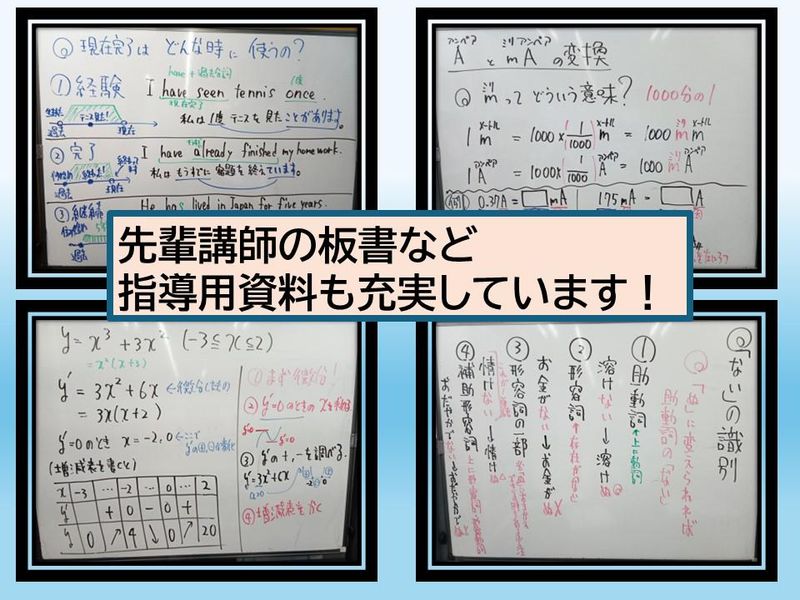 Q 現在完了は どんな時に 使うの?
have + 過去分詞
① 経験 I have seen tennis once.
1度
現在完了
テニス見た!
私は1度テニスを見たことがあります。
過去 現在
② 完了 I have already finished my homework.
私は もうすでに 宿題を終えています。
過去 現在
③ 継続 He has lived in Japan for five years.
過去
アンペア ミリアンペア
A と mA の変換
ミリ
Q m って どういう意味? 1000分の1
メートル メートル ミリメートル
1 m = 1000 × 1/1000 m = 1000 m m
アンペア アンペア ミリアンペア
1 A = 1000 × 1/1000 A = 1000 m A
0.37A = □ mA 175 mA = □ A
先輩講師の板書など
指導用資料も充実しています！
y = x³ + 3x² (-3 ≦ x ≦ 2)
= x²(x+3)
y' = 3x² + 6x ← 微分したもの
= 3x(x+2)
y' = 0 のとき x = -2, 0
(増減表を書くと)
x -3 … -2 … 0 … 2
y' + 0 - 0 +
y 0 ↗ 4 ↘ 0 ↗ 20
① まず微分!
② y'=0 のときの x を求める
y'=0
③ y' の +, - を調べる。
y' = 3x² + 6x
④ 増減表をかく
Q「ない」の識別
「ぬ」に変えられれば
助動詞の「ない」
① 助動詞 ↑上に動詞
溶けない → 溶けぬ
② 形容詞
お金がない → お金がぬ ×
③ 形容詞の一部
情けない → 情けぬ
④ 補助形容詞